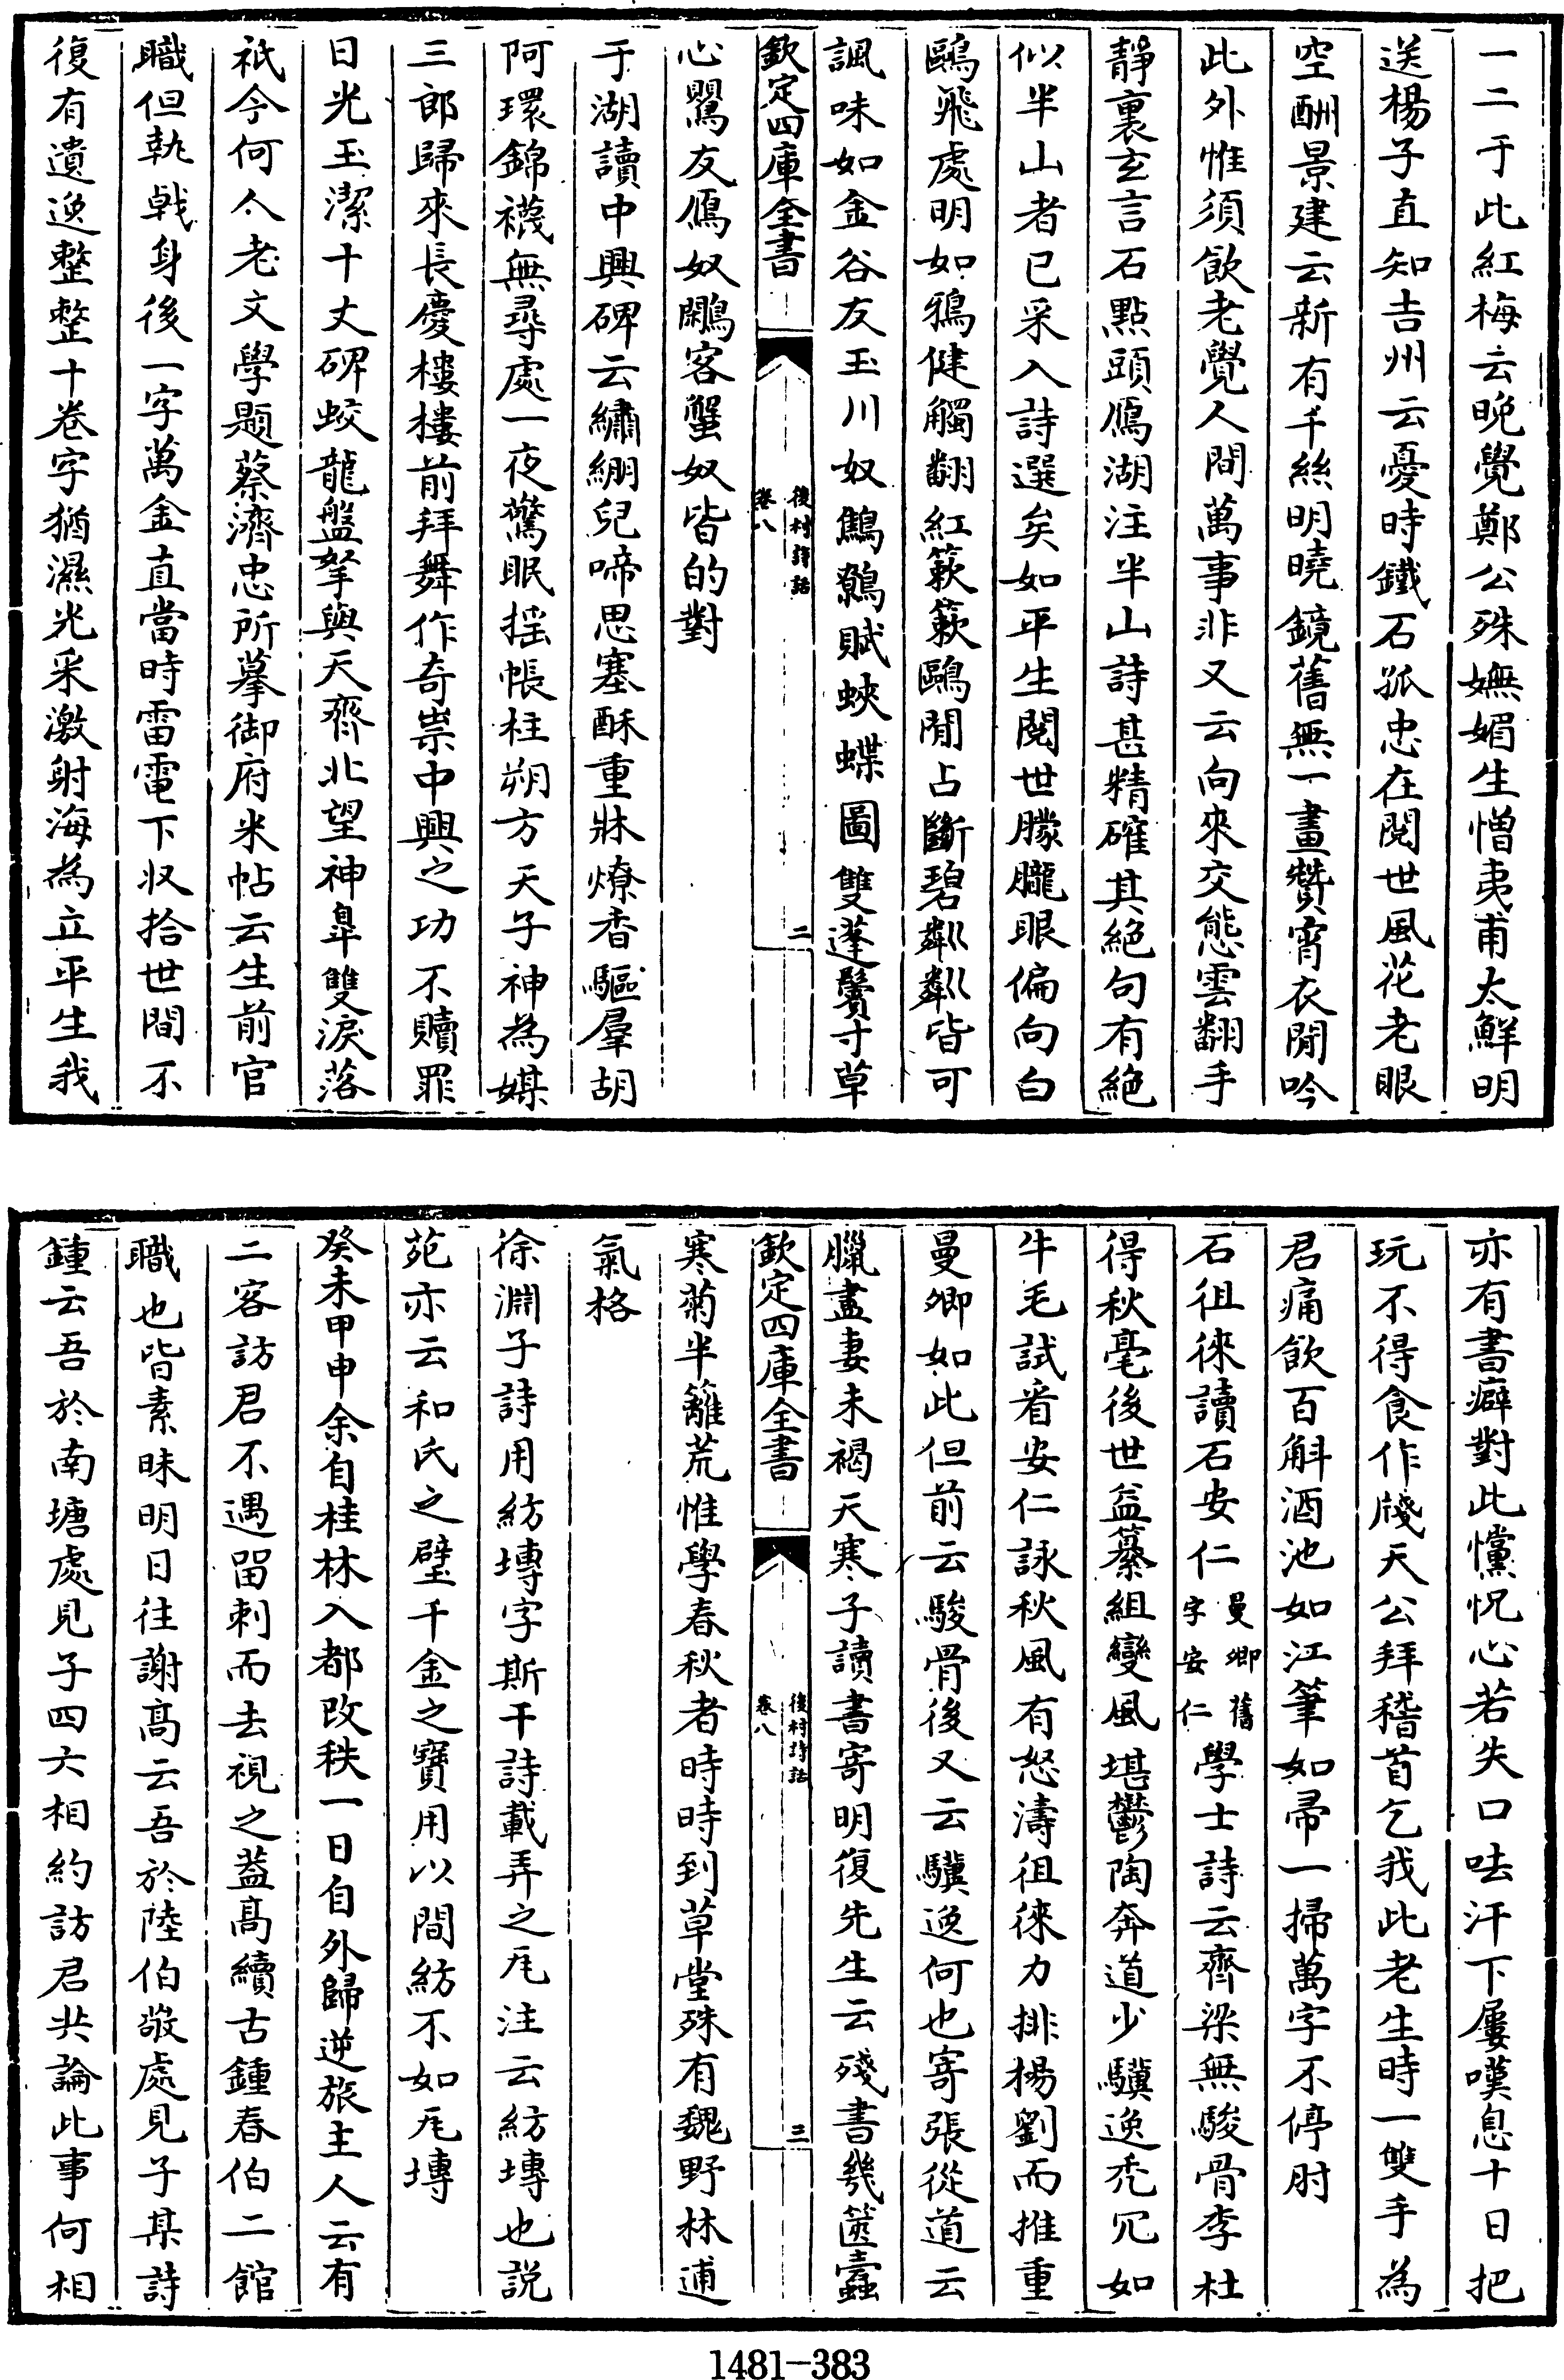 一二于此紅梅云晚覺鄭公殊嫵媚生憎夷甫太鮮明
送楊子直知吉州云憂時鐵石孤忠在閱世風花老眼
空酬景建云新有千絲明曉鏡舊無一畫贊宵衣閒吟
此外惟須飲老覺人間萬事非又云向來交態雲翻手
靜裏玄言石點頭鴈湖注半山詩甚精確其絕句有絕
似半山者已采入詩選矣如平生閱世朦朧眼偏向白
鷗飛處明如鴉健觸翻紅簌簌鷗閒占斷碧粼粼皆可
諷味如金谷友玉川奴鷦鷯賦蛺蝶圖雙蓬鬢寸草
欽定四庫全書
後村詩話
卷八
二
心鷪友鴈奴鷴客蟹奴皆的對
于湖讀中興碑云繡綳兒啼思塞酥重牀燎香驅羣胡
阿環錦襪無尋處一夜驚眠搖帳柱朔方天子神為媒
三郎歸來長慶樓樓前拜舞作奇祟中興之功不贖罪
日光玉潔十丈碑蛟龍盤拏與天齊北望神臯雙淚落
祇今何人老文學題蔡濟忠所摹御府米帖云生前官
職但執戟身後一字萬金直當時雷電下收拾世間不
復有遺逸整整十卷字猶濕光采激射海為立平生我
亦有書癖對此戃怳心若失口呿汗下屢嘆息十日把
玩不得食作牋天公拜稽首乞我此老生時一雙手為
君痛飲百斛酒池如江筆如帚一掃萬字不停肘
石徂徠讀石安仁曼卿舊字安仁學士詩云齊梁無駿骨李杜
得秋毫後世益纂組變風堪鬱陶奔道少驥逸禿冗如
牛毛試看安仁詠秋風有怒濤徂徠力排楊劉而推重
曼卿如此但前云駿骨後又云驥逸何也寄張從道云
臘盡妻未褐天寒子讀書寄明復先生云殘書幾篋蠹
欽定四庫全書
後村詩話
卷八
三
寒菊半籬荒惟學春秋者時時到草堂殊有魏野林逋
氣格
徐淵子詩用紡塼字斯干詩載弄之瓦注云紡塼也說
苑亦云和氏之璧千金之寶用以間紡不如瓦塼
癸未甲申余自桂林入都改秩一日自外歸逆旅主人云有
二客訪君不遇留刺而去視之蓋髙續古鍾春伯二館
職也皆素昧明日往謝髙云吾於陸伯敬處見子某詩
鍾云吾於南塘處見子四六相約訪君共論此事何相
1481—383